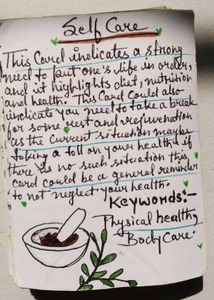 Self Care
This Card indicates a strong
need to put one's life in order,
and it highlights diet, nutrition
and health. This Card could also
indicate you need to take a break
for some rest and rejuvenation
as the current situation maybe
taking a toll on your health if
there is no such situation this
card could be a general reminder
to not neglect your health.
Keywords:-
Physical health,
Body Care.